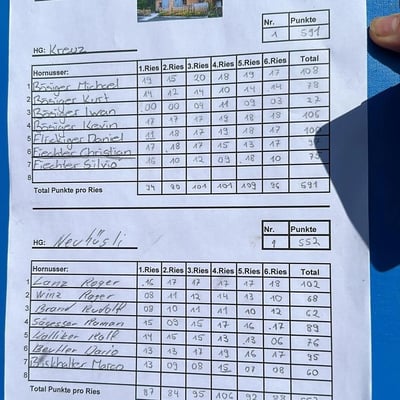 Nr. Punkte
1 591
HG: Kreuz
Hornusser: 1.Ries 2.Ries 3.Ries 4.Ries 5.Ries 6.Ries Total
1 Bösiger Michael 19 15 20 18 19 17 108
2 Bösiger Kurt 14 12 14 10 14 .14 78
3 Bösiger Iwan .00 00 04 11 09 03 27
4 Bösiger Kevin 17 17 17 19 18 18 106
5 Flückiger Daniel 18 17 19 18 17
6 Fiechter Christian 17 .18 17 15 13 17
7 Fiechter Silvio 16 10 12 09 .18 10 75
8
Total Punkte pro Ries 94 90 101 101 109 96 591
Nr. Punkte
1 552
HG: Neuhüsli
Hornusser: 1.Ries 2.Ries 3.Ries 4.Ries 5.Ries 6.Ries Total
1 Lanz Roger .16 17 17 17 17 18 102
2 Winz Roger 08 11 12 14 13 10 68
3 Brand Rudolf 08 10 11 11 10 12 62
4 Sägesser Roman 15 09 15 17 16 .17 89
5 Walliker Rolf 14 15 15 13 13 06 76
6 Beutler Dario 13 13 17 19 16 17 95
7 Marco 13 09 08 15 07 08 60
8
Total Punkte pro Ries 87 84 95 106 92 88 552